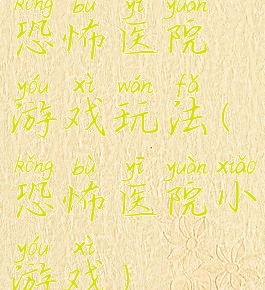 kǒng bù yī yuàn
恐怖医院
yóu xì wán fǎ
游戏玩法(
kǒng bù yī yuàn xiǎo
恐怖医院小
yóu xì
游戏)